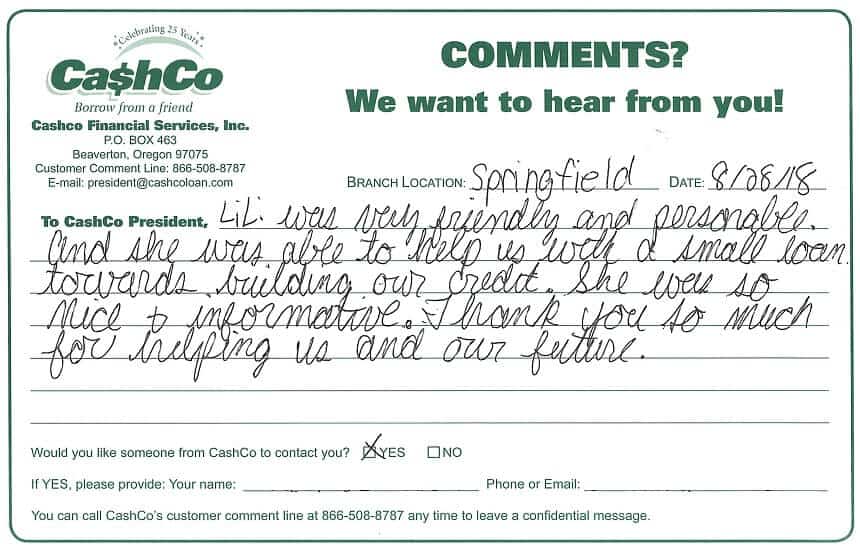 Celebrating 25 Years
Ca$hCo
Borrow from a friend
Cashco Financial Services, Inc.
P.O. BOX 463
Beaverton, Oregon 97075
Customer Comment Line: 866-508-8787
E-mail: president@cashcoloan.com
COMMENTS?
We want to hear from you!
BRANCH LOCATION: Springfield DATE: 8/28/18
To CashCo President, LiLi was very friendly and personable.
And she was able to help us with a small loan
towards building our credit. She was so
nice + informative. Thank you so much
for helping us and our future.
Would you like someone from CashCo to contact you? ☒YES ☐NO
If YES, please provide: Your name: Phone or Email:
You can call CashCo's customer comment line at 866-508-8787 any time to leave a confidential message.